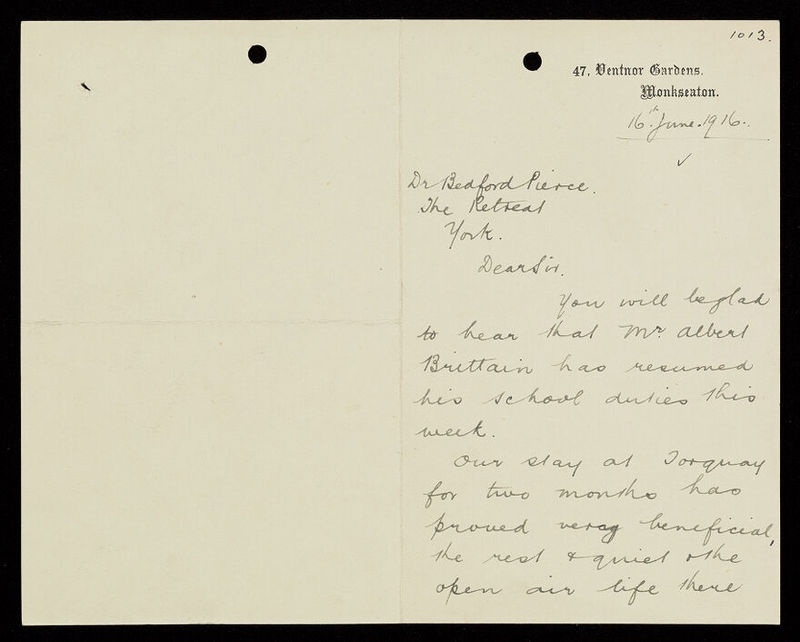 1013.
47, Ventnor Gardens.
Monkseaton.
16th June. 1916.
Dr Bedford Pierce.
The Retreat
York.
Dear Sir.
You will be glad
to hear that Mr. Albert
Brittain has resumed
his school duties this
week.
Our stay at Torquay
for two months has
proved very beneficial,
the rest & quiet & the
open air life there